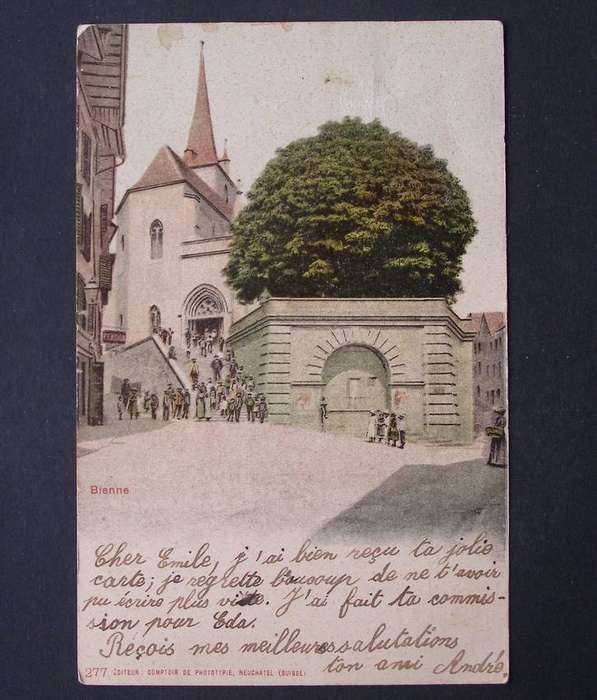 Bienne
Cher Emile, j'ai bien reçu ta jolie
carte; je regrette beaucoup de ne t'avoir
pu écrire plus vite. J'ai fait ta commis-
sion pour Eda.
Reçois mes meilleures salutations
ton ami André
277 EDITEUR: COMPTOIR DE PHOTOTYPIE, NEUCHATEL (SUISSE)